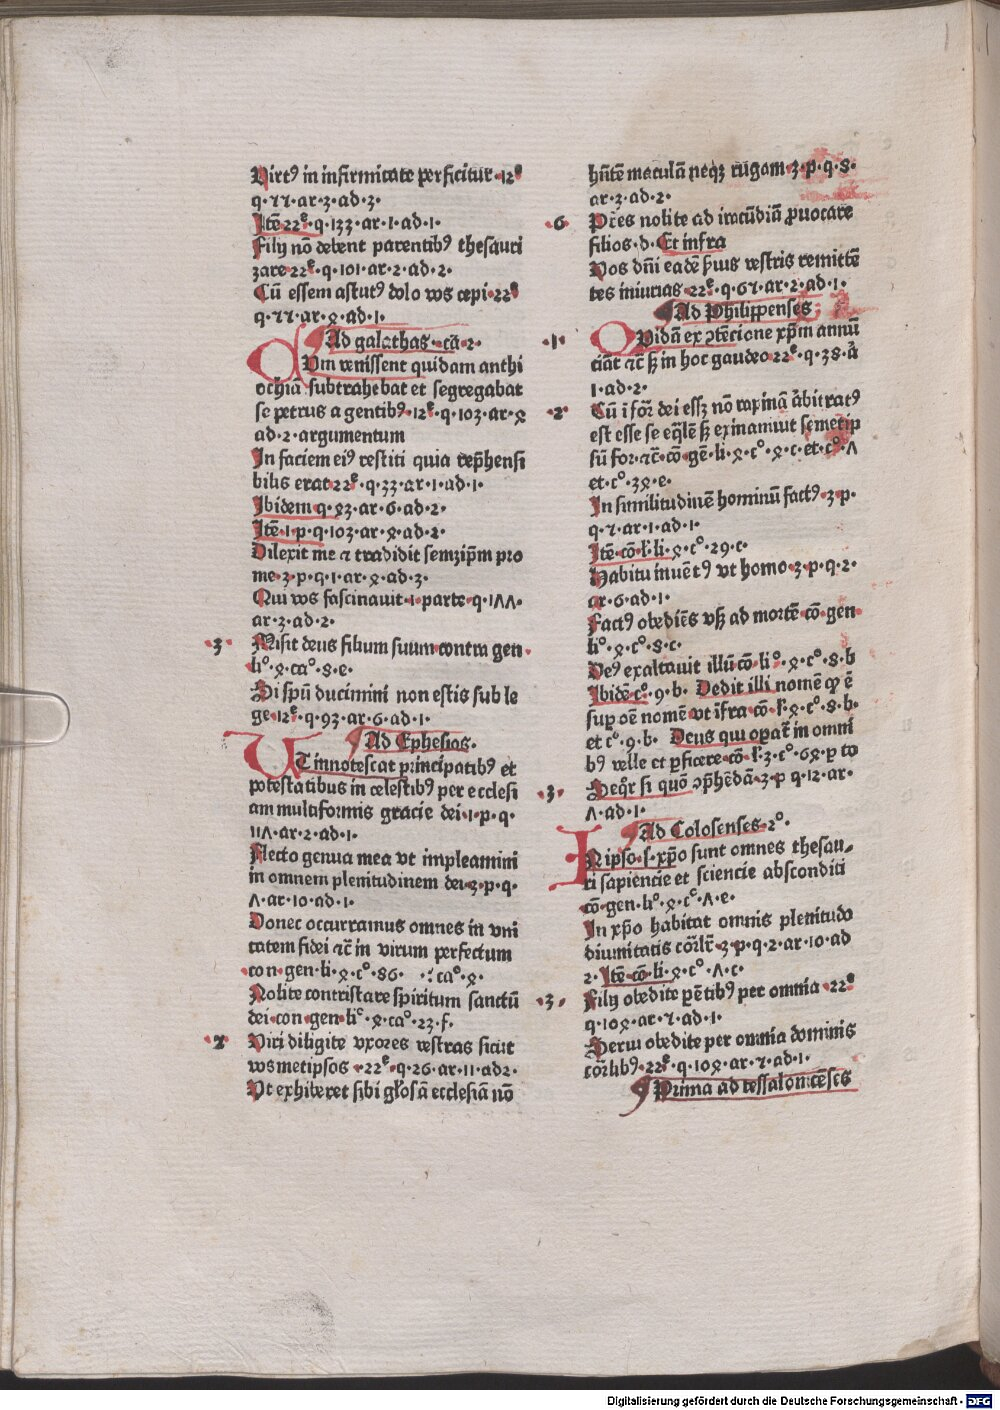 Virtꝰ in infirmitate perficitur·12ᵉ
q·77·ar·3·ad·3·
Itē 22ᵉ·q·133·ar·1·ad·1·
Filij nō debent parentibꝰ thesauri
zare 22ᵉ·q·101·ar·2·ad·2·
Cū essem astutꝰ dolo vos cepi·22ᵉ
q·77·ar·ꝝ·ad·1·
Ad galathas·cā·2·
Cum venissent quidam anthi
ochiā subtrahebat et segregabat
se petrus a gentibꝰ·12ᵉ·q·103·ar·ꝝ
ad·2·argumentum
In faciem eiꝰ restiti quia rep̄hensi
bilis erat 22ᵉ·q·33·ar·1·ad·1·
Ibidem q·ꝝ3·ar·6·ad·2·
Itē·1·p·q·103·ar·ꝝ·ad·2·
Dilexit me ⁊ tradidit semzip̄m pro
me·3·p·q·1·ar·ꝝ·ad·3·
Qui vos fascinauit·1·parte·q·1ΛΛ·
ar·3·ad·2·
·3· Misit deus filium suum contra gen·
liº·ꝝ·caº·8·e·
Si spū ducimini non estis sub le
ge·12ᵉ·q·93·ar·6·ad·1·
Ad Ephesios·
UT innotescat principatibꝰ et
potestatibus in celestibꝰ per ecclesi
am multiformis gracie dei·1·p·q·
11Λ·ar·2·ad·1·
Flecto genua mea vt impleamini
in omnem plenitudinem dei·3·p·q·
Λ·ar·10·ad·1·
Donec occurramus omnes in vni
tatem fidei ⁊c̄ in virum perfectum
con·gen·li·ꝝ·cº·86· ·:caº·ꝝ·
Nolite contristare spiritum sanctū
dei·con·gen·liº·ꝝ·caº·23·f·
·7· Viri diligite vxores vestras sicut
vosmetipsos·22ᵉ·q·26·ar·11·ad2·
Vt exhiberet sibi gl̄osā ecclesiā nō
hn̄tē maculā neqꝫ rugam·3·p·q·8·
ar·3·ad·2·
·6· Pr̄es nolite ad iracūdiā ꝓuocare
filios·d·Et infra
Vos dn̄i eadē ẜuis vestris remittē
tes iniurias·22ᵉ·q·67·ar·2·ad·1·
Ad Philippenses
·1· QVidā ex ꝯtēcione xp̄m annū
ciāt ⁊c̄ ꝗ in hoc gaudeo 22ᵉ·q·38·ā
1·ad·2·
·2· Cū i for̄ dei essꝫ nō rapinā ārbitratꝰ
est esse se eq̄lē ꝗ exinaniuit semetip
sū for·⁊c̄·cō·gē·li·ꝝ·cº·ꝝ·c·et·cº·Λ
et·cº·3ꝝ·e·
In similitudinē hominū factꝰ·3·p·
q·7·ar·1·ad·1·
Itē·cō·l·li·ꝝ·cº·29·c·
Habitu inuētꝰ vt homo·3·p·q·2·
ar·6·ad·1·
Factꝰ obediēs vsꝗ ad mortē·cō·gen·
liº·ꝝ·cº·8·c·
Deꝰ exaltauit illū cō·liº·ꝝ·cº·8·b
Ibidē cº·9·b·Dedit illi nomē qꝫ ē
suꝑ oē nomē vt īfra cō·l·ꝝ·cº·8·b·
et cº·9·b·Deus qui oꝑat̄ in omni
bꝰ velle et ꝑficere·cō·l·3·cº·6ꝝ·ꝑ to
·3· Seqr̄ si quō ꝯp̄hēdā·3·p q·12·ar·
Λ·ad·1·
Ad Colosenses·2º·
INipso·s·xp̄o sunt omnes thesau-
ri sapiencie et sciencie absconditi
cō·gen·liº·ꝝ·cº·Λ·e·
In xp̄o habitat omnis plenitudo
diuinitatis cōr̄lr̄·3·p·q·2·ar·10·ad
2·Itē·cō·li·ꝝ·cº·Λ·c·
·3· Filij obedite pētibꝰ per omnia·22ᵉ
q·10ꝝ·ar·7·ad·1·
Serui obedite per omnia dominis
cōr̄libꝰ·22ᵉ·q·10ꝝ·ar·7·ad·1·
Prima ad tessalonicēses
Digitalisierung gefördert durch die Deutsche Forschungsgemeinschaft - DFG